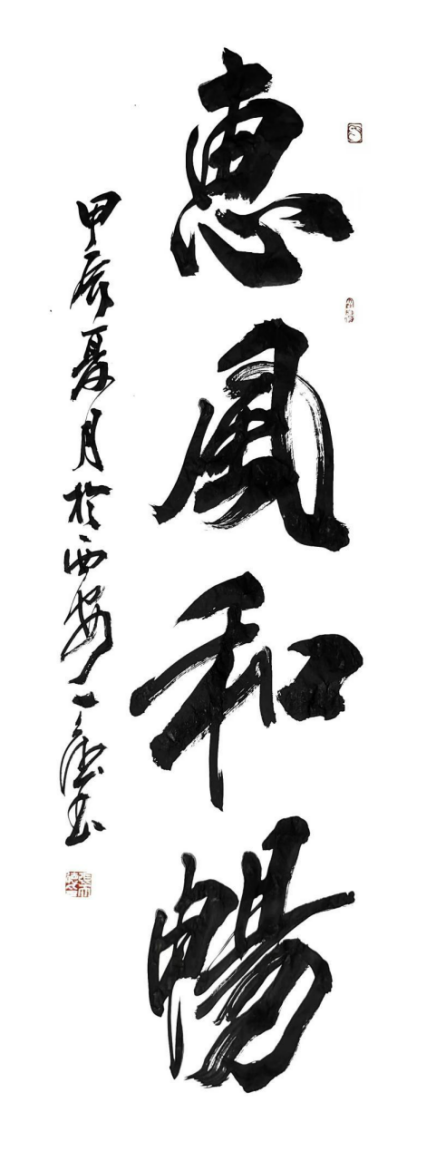 惠風和暢
甲辰夏月於西安一德書